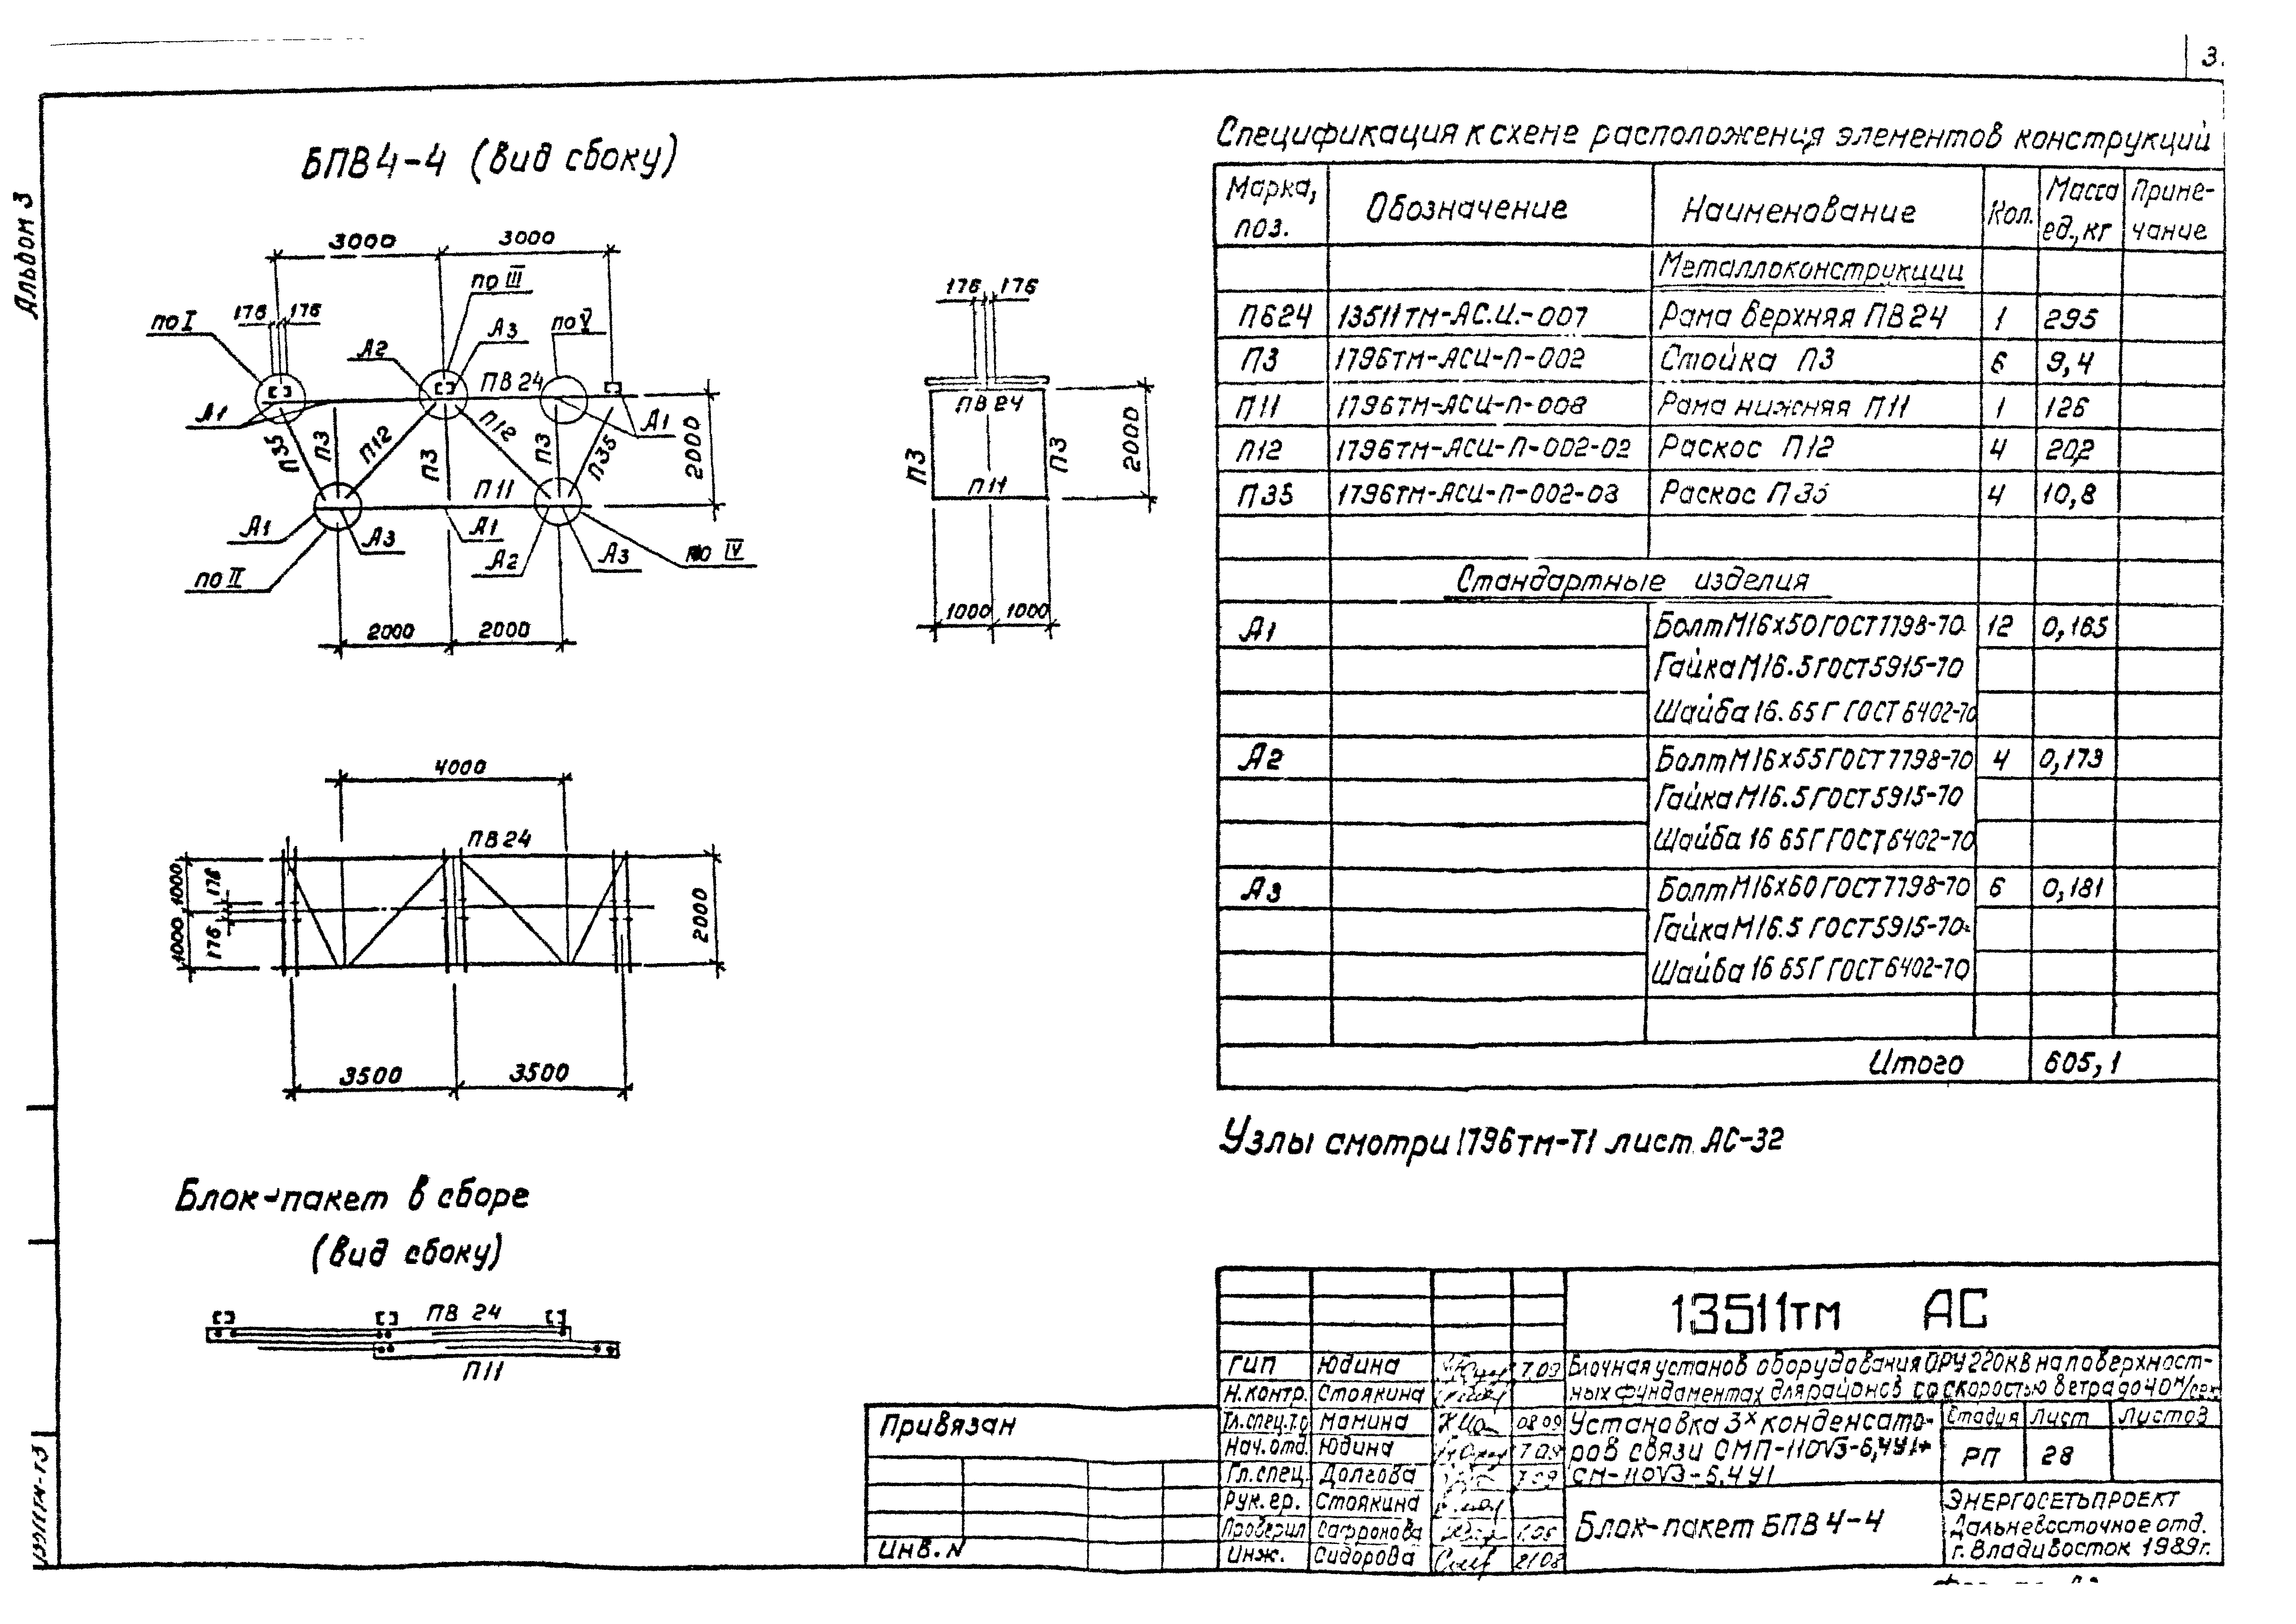 3.
Альбом 3
БПВ 4-4 (вид сбоку)
3000 3000
по III
176 176
по I
А3
по V
А2
ПВ 24
А1
А1
П35
П3
П12
П3
П12
П3
П35
2000
П11
А1
А3
А1
А2
А3
по IV
по II
2000 2000
176 176
ПВ 24
П3
П3
2000
П11
1000 1000
4000
ПВ 24
1000
1000
176
176
2000
3500 3500
Блок-пакет в сборе
(вид сбоку)
ПВ 24
П11
Спецификация к схене расположения элементов конструкций
Марка, поз. Обозначение Наименование Кол. Масса ед., кг Приме-чание
Металлоконструкции
ПБ24 13511тм-АС.И.-007 Рама верхняя ПВ24 1 295
П3 1796тм-АСИ-П-002 Стойка П3 6 9,4
П11 1796тм-АСИ-П-008 Рама нижняя П11 1 126
П12 1796тм-АСИ-П-002-02 Раскос П12 4 20,2
П35 1796тм-АСИ-П-002-03 Раскос П35 4 10,8
Стандартные изделия
А1 Болт М16х50 ГОСТ 7798-70 12 0,165
Гайка М16.5 ГОСТ 5915-70
Шайба 16.65Г ГОСТ 6402-70
А2 Болт М16х55 ГОСТ 7798-70 4 0,173
Гайка М16.5 ГОСТ 5915-70
Шайба 16 65Г ГОСТ 6402-70
А3 Болт М16х60 ГОСТ 7798-70 6 0,181
Гайка М16.5 ГОСТ 5915-70
Шайба 16 65Г ГОСТ 6402-70
Итого 605,1
Узлы смотри 1796тм-Т1 лист АС-32
13511тм АС
ГИП Юдина 7.09
Н.контр. Стоякина
Гл.спец.т.о Мамина 08 09
Нач.отд. Юдина 7 09
Гл.спец Долгова 7 09
Рук.гр. Стоякина
Проверил Сафронова
Инж. Сидорова 21 08
Блочная установ оборудования ОРУ 220кВ на поверхност-
ных фундаментах для районов со скоростью ветра до 40 м/сек
Установка 3х конденсато-
ров связи СМП-110√3-6,4У1+
СМ-110√3-6,4У1
Стадия Лист Листов
РП 28
Блок-пакет БПВ 4-4
ЭНЕРГОСЕТЬПРОЕКТ
Дальневосточное отд.
г. Владивосток 1989г.
Привязан
Инв. N
13511тм-Т3